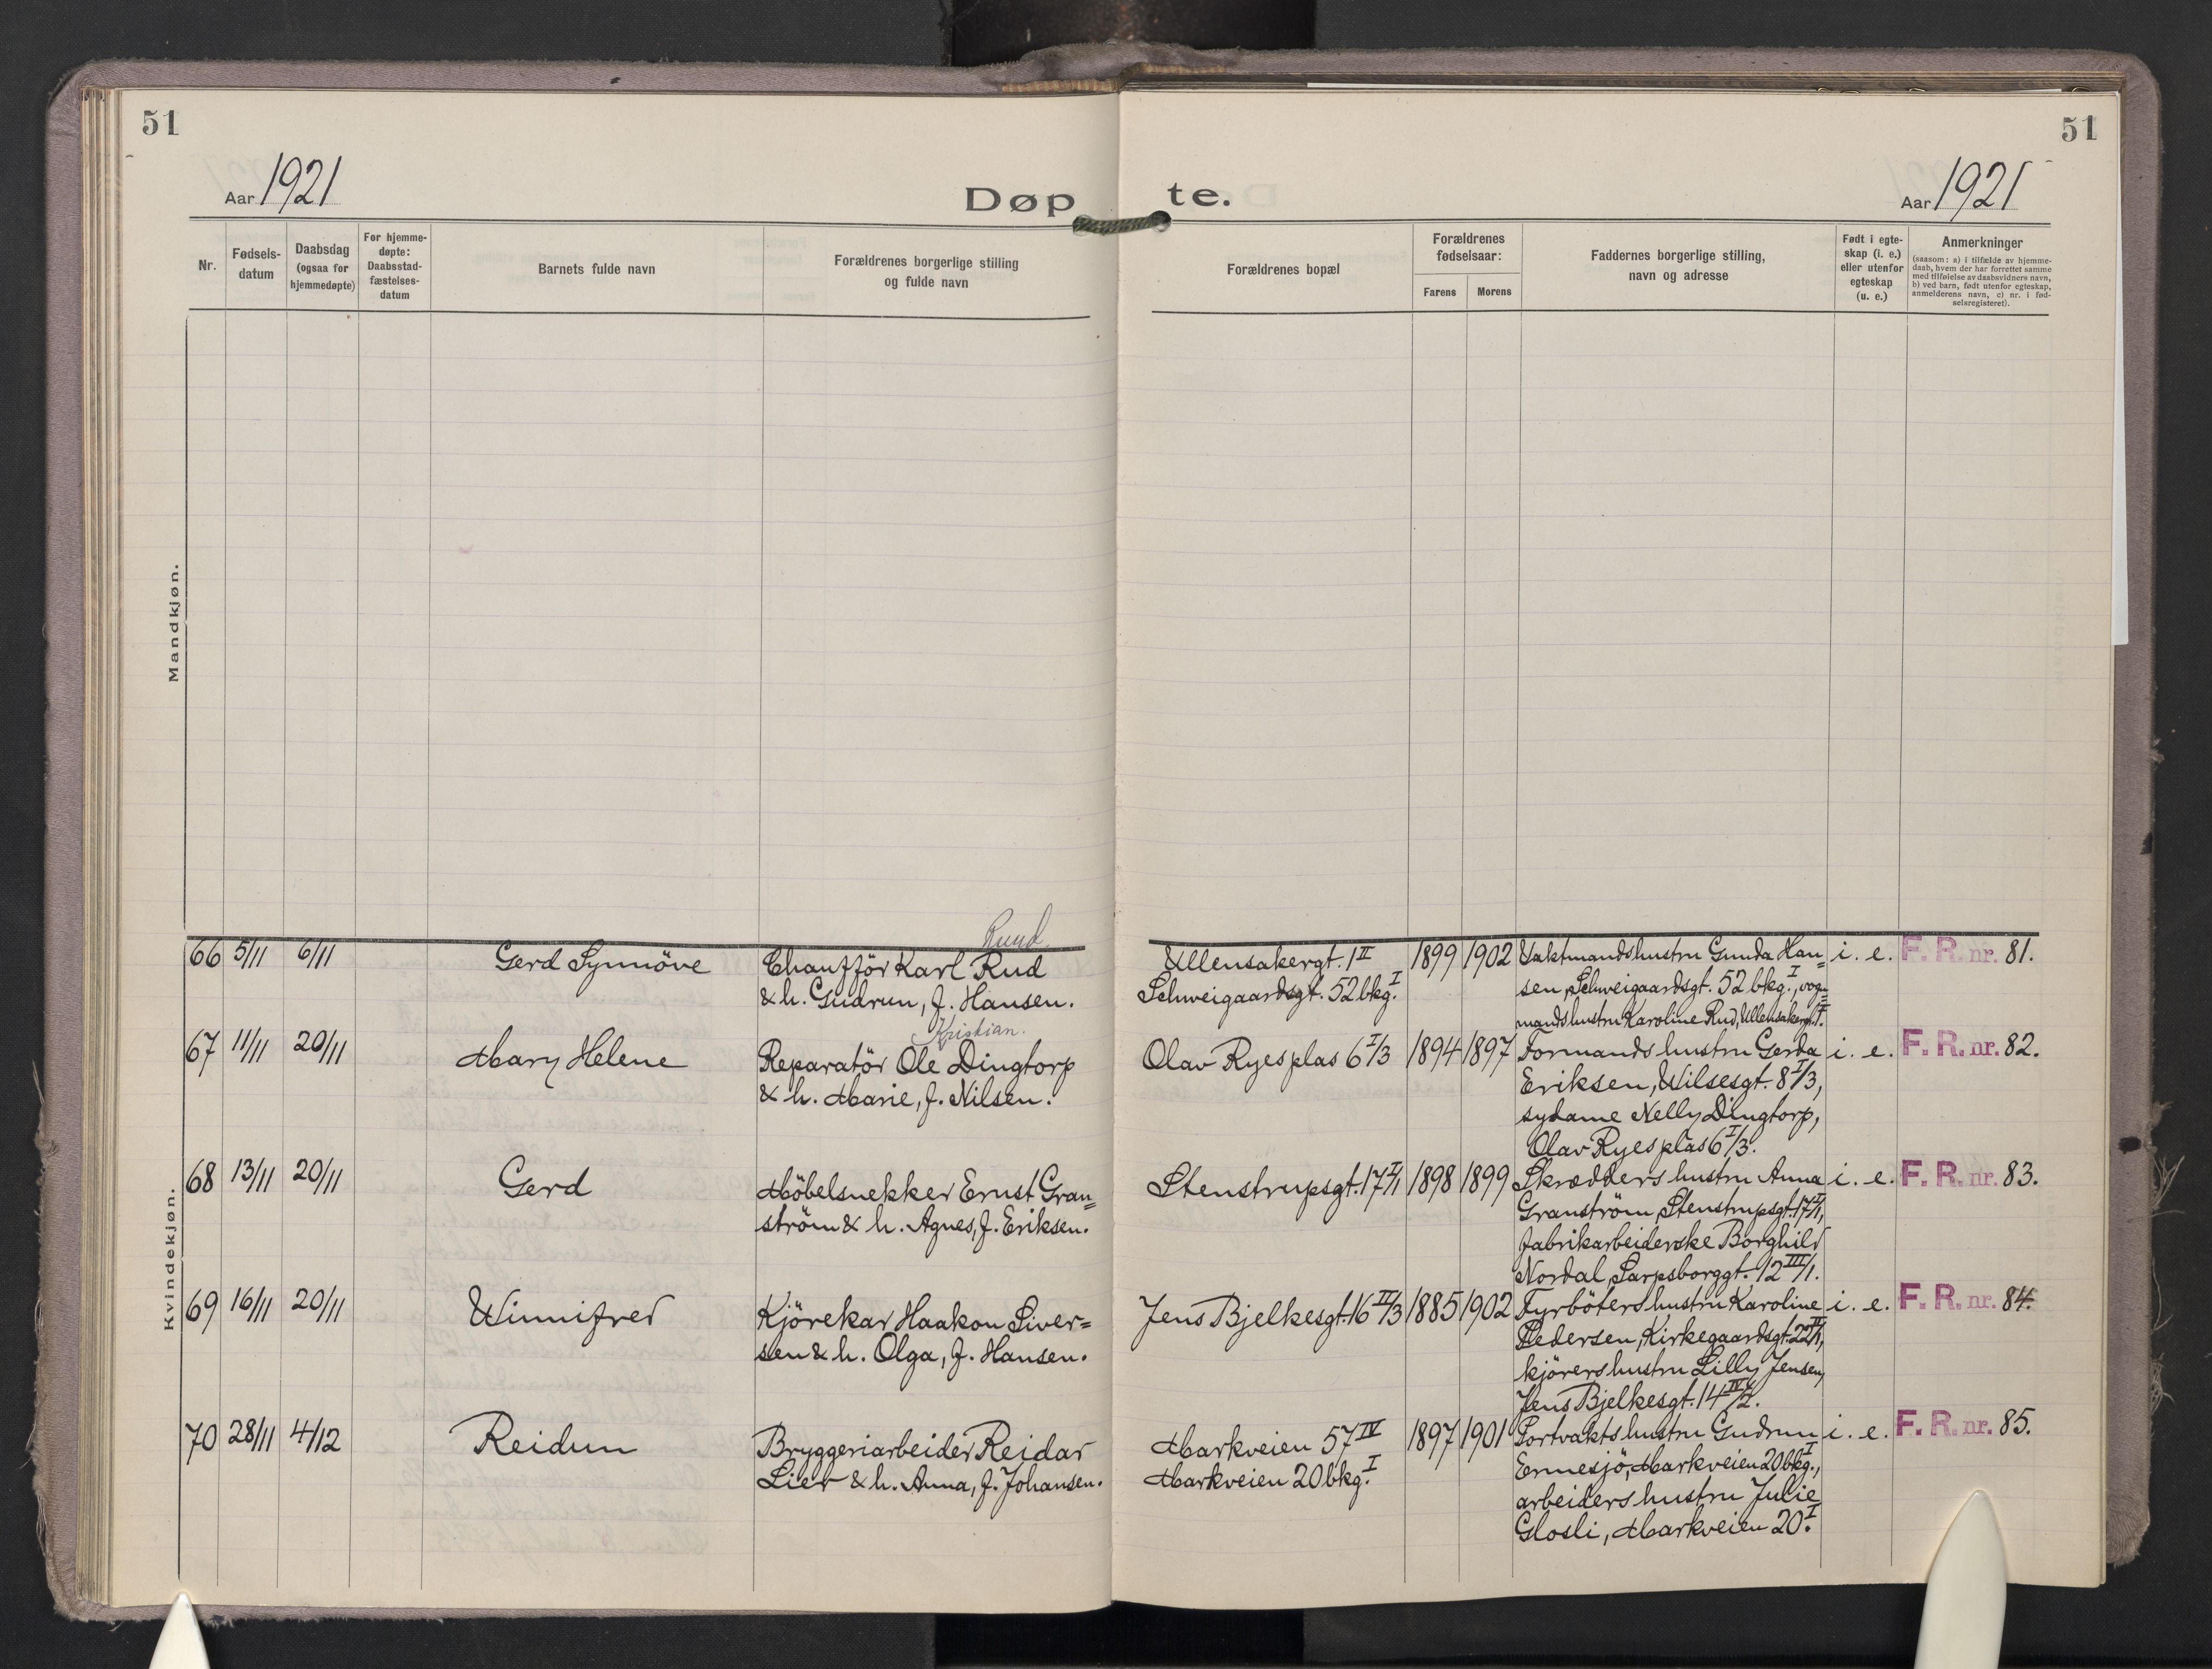 51
Aar 1921
Døp
Nr.
Fødsels-
datum
Daabsdag
(ogsaa for
hjemmedøpte)
For hjemme-
døpte:
Daabsstad-
fæstelses-
datum
Barnets fulde navn
Forældrenes borgerlige stilling
og fulde navn
Mandkjøn.
Kvindekjøn.
66 5/11 6/11 Gerd Synnöve
Ruud
Chaufför Karl Rud
& h. Gudrun, f. Hansen.
67 11/11 20/11 Mary Helene
Kristian.
Reparatör Ole Dingtorp
& h. Marie, f. Nilsen.
68 13/11 20/11 Gerd
Möbelsnekker Ernst Gran=
ström & h. Agnes, f. Eriksen.
69 16/11 20/11 Winnifred
Kjörekar Haakon Siver=
sen & h. Olga, f. Hansen.
70 28/11 4/12 Reidun
Bryggeriarbeider Reidar
Lier & h. Anna, f. Johansen.
51
te.
Aar 1921
Forældrenes bopæl
Forældrenes
fødselsaar:
Farens
Morens
Faddernes borgerlige stilling,
navn og adresse
Født i egte-
skap (i. e.)
eller utenfor
egteskap
(u. e.)
Anmerkninger
(saasom: a) i tilfælde av hjemme-
daab, hvem der har forrettet samme
med tilføielse av daabsvidners navn,
b) ved barn, født utenfor egteskap,
anmelderens navn, c) nr. i fød-
selsregisteret).
Ullensakergt. 1 II
Schweigaardsgt. 52 bkg. I
1899 1902
Vaktmandshustru Gunda Han=
sen, Schweigaardsgt. 52 bkg. I, vogn=
mandshustru Karoline Rud, Ullensakergt. 1 II.
i. e. F. R. nr. 81.
Olav Ryesplas 6 I/3
1894 1897
Formandshustru Gerda
Eriksen, Wilsesgt. 8 I/3,
sydame Nelly Dingtorp,
Olav Ryesplas 6 I/3.
i. e. F. R. nr. 82.
Stenstrupsgt. 17 I/1
1898 1899
Skrædders hustru Anna
Granström, Stenstrupsgt. 17 I/1,
fabrikarbeiderske Borghild
Nordal, Sarpsborggt. 12 III/1.
i. e. F. R. nr. 83.
Jens Bjelkesgt. 16 II/3
1885 1902
Fyrböters hustru Karoline
Pedersen, Kirkegaardsgt. 22
kjörers hustru Lilly Jensen,
Jens Bjelkesgt. 14 IV/2.
i. e. F. R. nr. 84.
Markveien 57 IV
Markveien 20 bkg. I
1897 1901
Portvakts hustru Gudrun
Ennesjö, Markveien 20 bkg. I,
arbeiders hustru Julie
Glosli, Markveien 20. I
i. e. F. R. nr. 85.